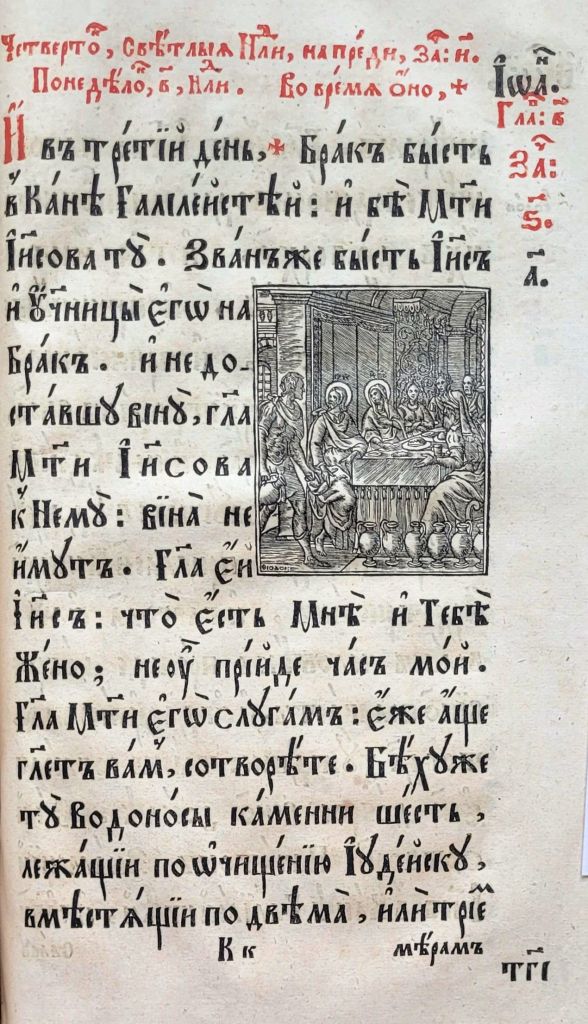 Четверто́к, Свѣ́тлыѧ Нлⷣи, напре́ди, За҃: и҃.
Понедѣ́ло, в҃, Нлⷣи. Во вре́мѧ ѻ́но, +
І҆ѡаⷩ҇.
Гла҃: в҃
За҃:
ѕ҃.
И҆ въ тре́тїй де́нь, + Бра́къ бы́сть
в Ка́нѣ Галїле́йстѣй: и҆ бѣ̀ Мт҃и
І҆и҃сова тꙋ̀. Зва́нъже бы́сть І҆и҃съ
а҃.
и҆ ᲂу҆чн҃цы̀ є҆гѡ̀ на
Бра́къ. и҆ не до-
ста́вшꙋ вїнꙋ̀, гл҃а
Мт҃и І҆и҃сова
к Немꙋ̀: вїна̀ не
и҆́мꙋтъ. Гл҃а є҆́й
ѲІОДОКЪ
І҆и҃съ: что̀ є҆́сть Мнѣ̀ и҆ Тебѣ̀
Же́но; не ᲂу҆̀ прїи́де ча́съ мо́й.
Гл҃а Мт҃и є҆гѡ̀ слꙋга́мъ: є҆́же а҆́ще
гл҃етъ ва́м, сотворѣ́те. Бѣ́хꙋже
тꙋ̀ Водоно́сы ка́менни ше́сть,
лежа́щїи по ѡ҆чище́нїю І҆ꙋде́йскꙋ,
вмѣстѧ́щїи по двѣма̀, и҆лѝ трїе́м
К к
мѣ́рамъ
тг҃і